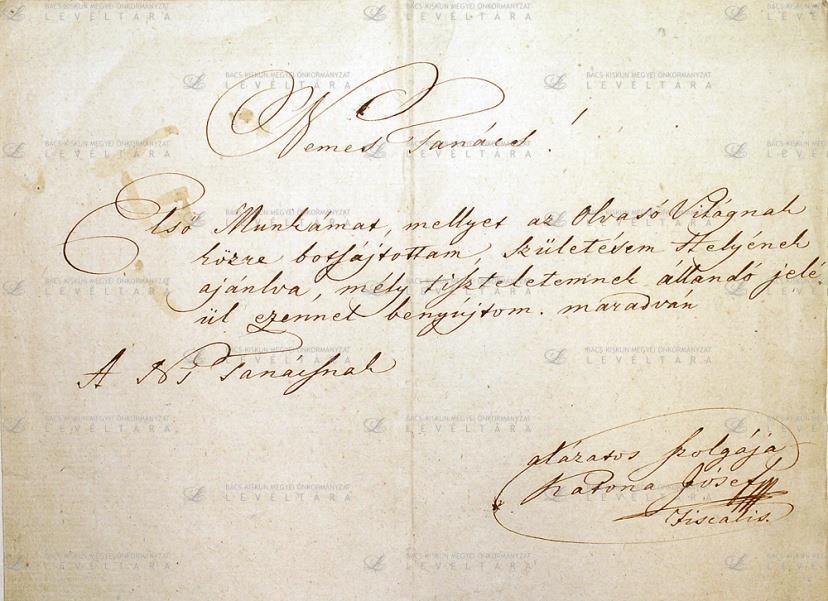 Nemes Tanács!
Első Munkámat, mellyet az Olvasó Világnak
közre botsájtottam, Születésem Helyének
ajánlva, mély tiszteletemnek állandó jelé-
ül ezennel benyújtom. maradván
A Ns Tanácsnak
alázatos szolgája
Katona Jósef
Fiscalis.
BÁCS-KISKUN MEGYEI ÖNKORMÁNYZAT
LEVÉLTÁRA